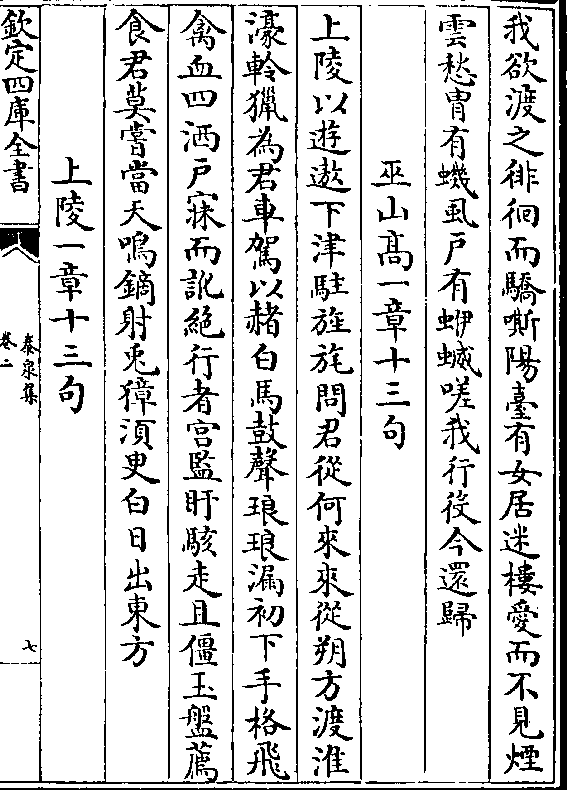 我欲渡之徘徊而驕嘶陽臺有女居迷樓愛而不見煙
雲愁胄有蟣虱戶有蛜蝛嗟我行役今還歸
巫山髙一章十三句
上陵以遊遨下津駐旌旄問君從何來來從朔方渡淮
濠軨獵為君車駕以赭白馬鼓聲琅琅漏初下手格飛
禽血四洒戶寐而訛絶行者宫監盱駭走且僵玉盤薦
食君莫嘗當天鳴鏑射兎獐湏臾白日出東方
上陵一章十三句
欽定四庫全書
泰泉集
卷二
七